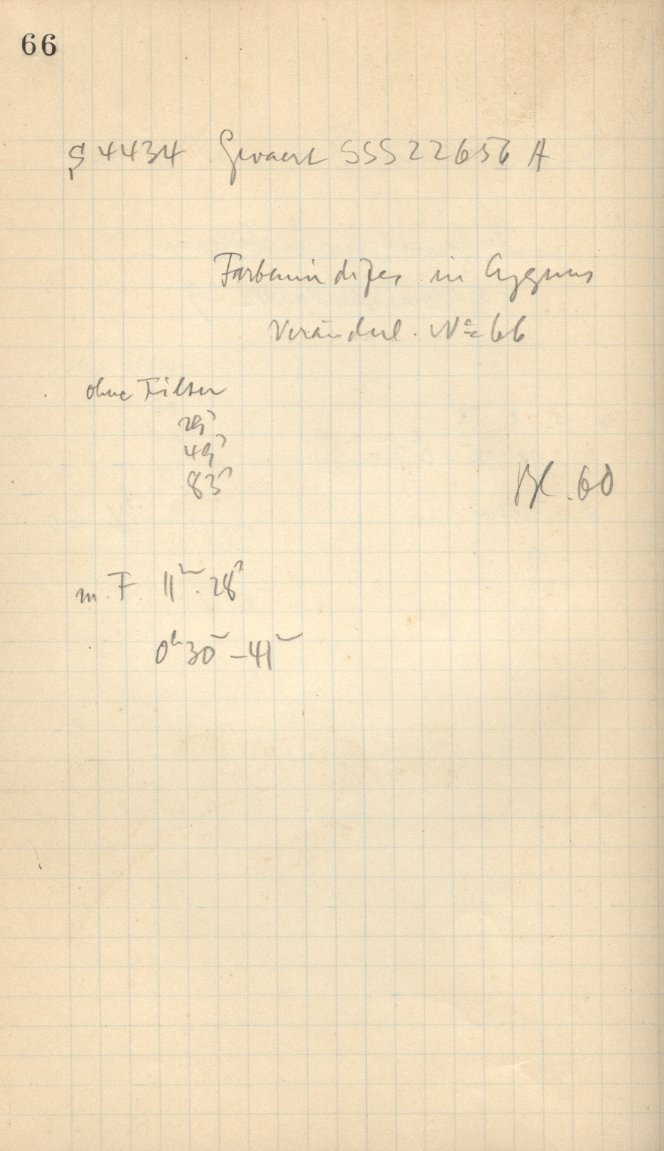 66
S 4434 Gevaert SSS 22656 A
Farbenindizes in Cygnus
Veränderl. No 66
ohne Filter
29s
49s
83s
Bl. 60
m. F. 11m 28s
0h 30m – 41m